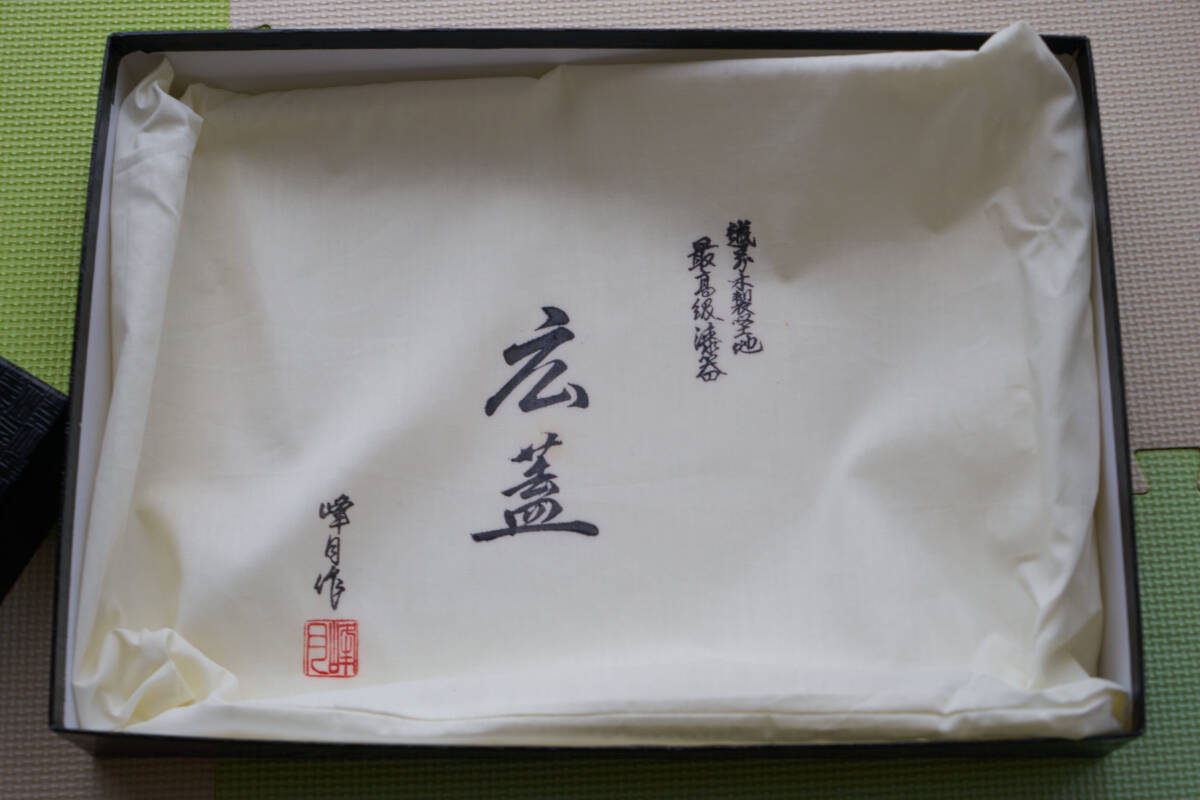 越前木製堅地
最高級漆器
広蓋
峰月作
峰月